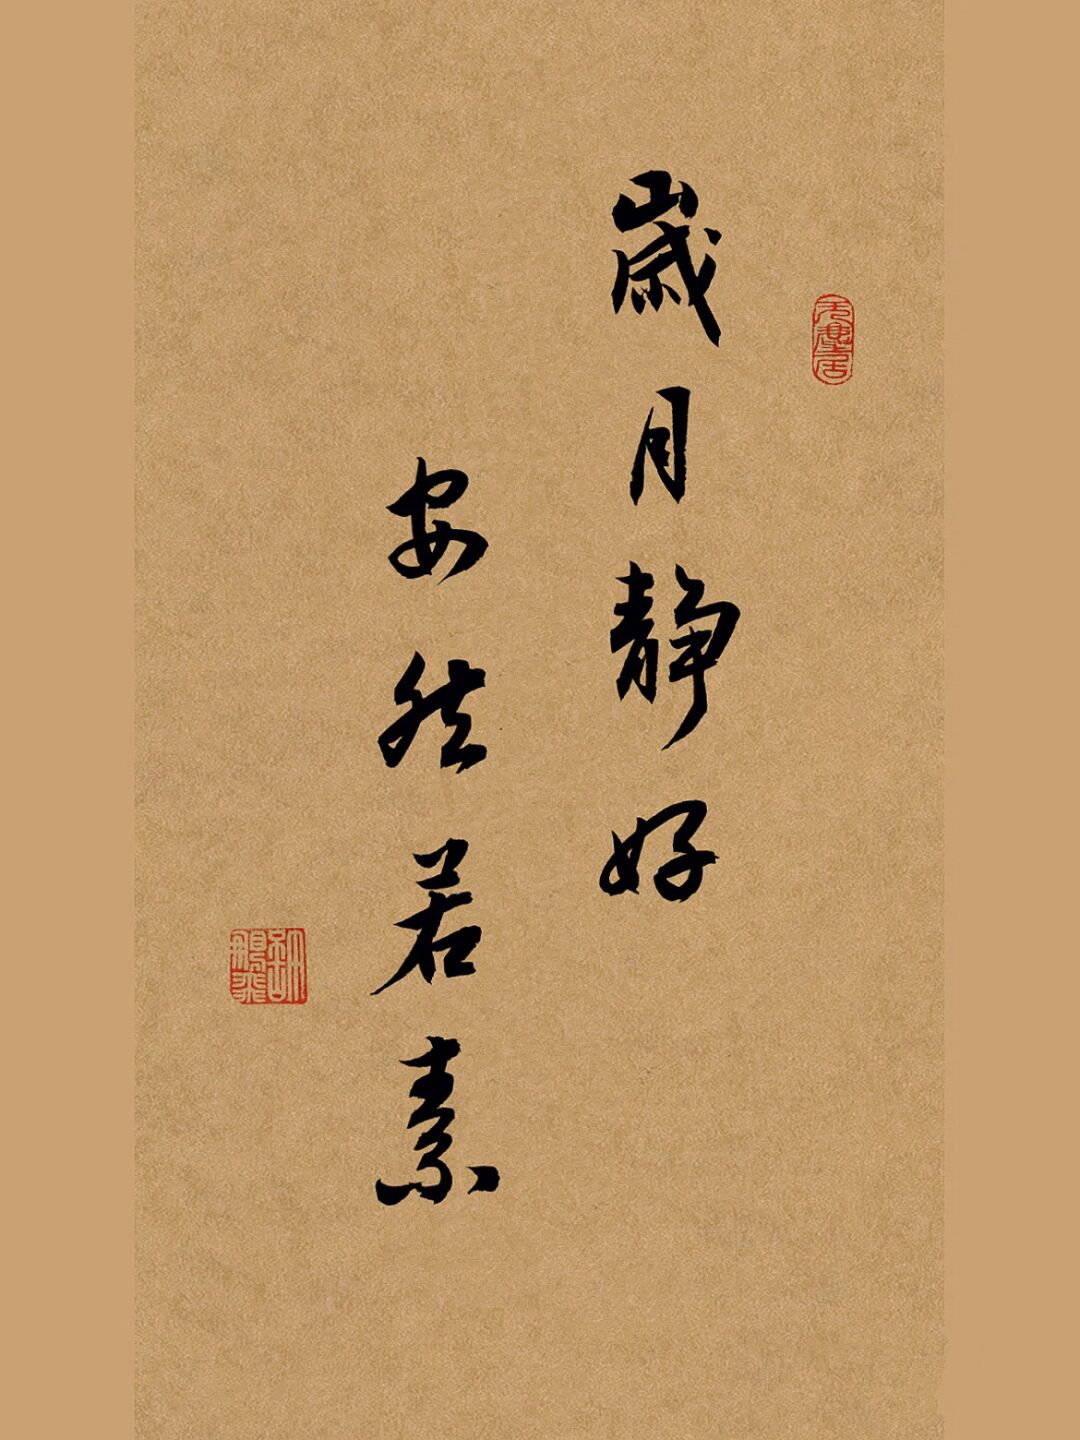 歲月靜好
安然若素